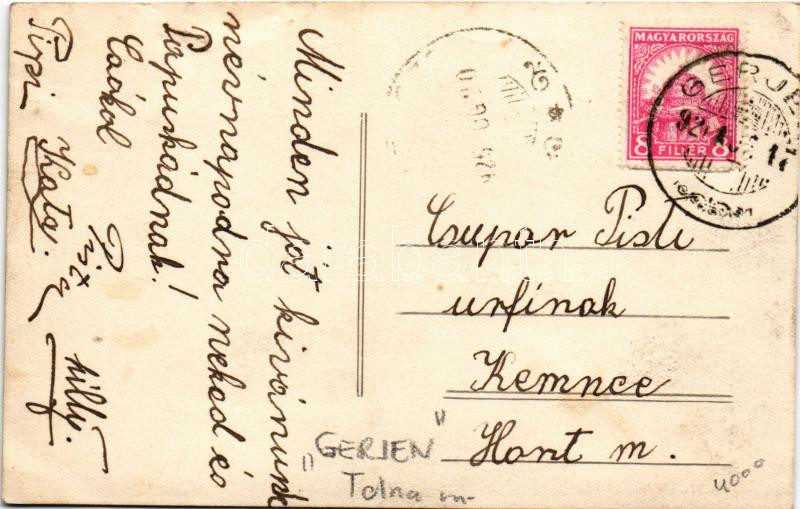 Minden jot kivánunk
névnapodra neked és
Papuskádnak!
Csókol
Pista
Pipi Kata.
Milly.
MAGYARORSZÁG
8 FILLÉR 8
GERJEN
Csupor Pisti
urfinak
Kemnce
Hont m.
"GERJEN"
Tolna m-
4000
darabanth